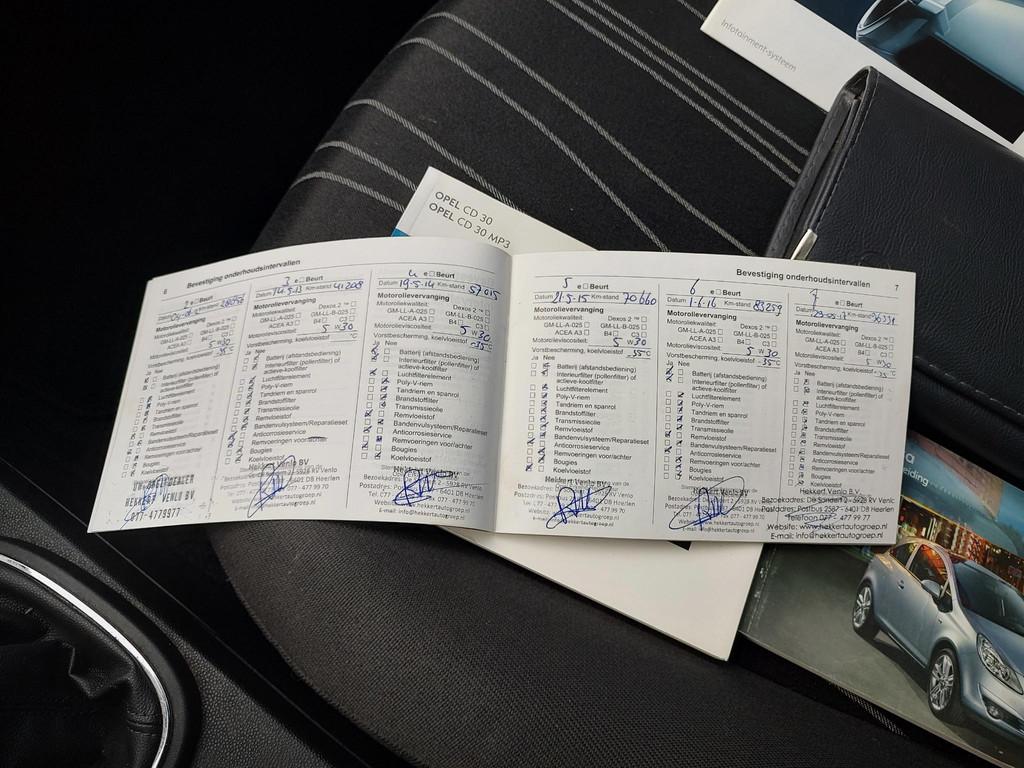 Infotainment-systeem
OPEL CD 30
OPEL CD 30 MP3
6 Bevestiging onderhoudsintervallen
e □ Beurt
Datum Km-stand
Motorolievervanging
Motoroliekwaliteit: Dexos 2 ™ □
GM-LL-A-025 □ GM-LL-B-025 □
ACEA A3 □ B4 □ C3 □
Motorolieviscositeit: 5 W 30
Vorstbescherming, koelvloeistof
Ja Nee
Luchtfilterelement
Poly-V-riem
Tandriem en spanrol
Brandstoffilter
Transmissieolie
Remvloeistof
Bandenvulsysteem/Reparatieset
Anticorrosieservice
Remvoeringen voor/achter
Bougies
Koelvloeistof
HEKKERT VENLO BV.
077-4779977
3 e □ Beurt
Datum 14-5-13 Km-stand 41208
Motorolievervanging
Motoroliekwaliteit: Dexos 2 ™ □
GM-LL-A-025 □ GM-LL-B-025 □
ACEA A3 □ B4 □ C3 □
Motorolieviscositeit: 5 W 30
Vorstbescherming, koelvloeistof -35°C
Ja Nee
Batterij (afstandsbediening)
Interieurfilter (pollenfilter) of
actieve-koolfilter
Luchtfilterelement
Poly-V-riem
Tandriem en spanrol
Brandstoffilter
Transmissieolie
Remvloeistof
Bandenvulsysteem/Reparatieset
Anticorrosieservice
Remvoeringen voor/achter
Bougies
Koelvloeistof
Hekkert Venlo BV
E-mail: info@hekkertautogroep.nl
4 e □ Beurt
Datum 19-5-14 Km-stand 57015
Motorolievervanging
Motoroliekwaliteit: Dexos 2 ™ □
GM-LL-A-025 □ GM-LL-B-025 □
ACEA A3 □ B4 □ C3 □
Motorolieviscositeit: 5 W 30
Vorstbescherming, koelvloeistof -35°C
Ja Nee
Batterij (afstandsbediening)
Interieurfilter (pollenfilter) of
actieve-koolfilter
Luchtfilterelement
Poly-V-riem
Tandriem en spanrol
Brandstoffilter
Transmissieolie
Remvloeistof
Bandenvulsysteem/Reparatieset
Anticorrosieservice
Remvoeringen voor/achter
Bougies
Koelvloeistof
Hekkert Venlo BV
E-mail: info@hekkertautogroep.nl
Bevestiging onderhoudsintervallen 7
5 e □ Beurt
Datum 21-5-15 Km-stand 70660
Motorolievervanging
Motoroliekwaliteit: Dexos 2 ™ □
GM-LL-A-025 □ GM-LL-B-025 □
ACEA A3 □ B4 □ C3 □
Motorolieviscositeit: 5 W 30
Vorstbescherming, koelvloeistof -35°C
Ja Nee
Batterij (afstandsbediening)
Interieurfilter (pollenfilter) of
actieve-koolfilter
Luchtfilterelement
Poly-V-riem
Tandriem en spanrol
Brandstoffilter
Transmissieolie
Remvloeistof
Bandenvulsysteem/Reparatieset
Anticorrosieservice
Remvoeringen voor/achter
Bougies
Koelvloeistof
Hekkert Venlo BV
E-mail: info@hekkertautogroep.nl
6 e □ Beurt
Datum 1-6-16 Km-stand 83259
Motorolievervanging
Motoroliekwaliteit: Dexos 2 ™ □
GM-LL-A-025 □ GM-LL-B-025 □
ACEA A3 □ B4 □ C3 □
Motorolieviscositeit: 5 W 30
Vorstbescherming, koelvloeistof -35°C
Ja Nee
Batterij (afstandsbediening)
Interieurfilter (pollenfilter) of
actieve-koolfilter
Luchtfilterelement
Poly-V-riem
Tandriem en spanrol
Brandstoffilter
Transmissieolie
Remvloeistof
Bandenvulsysteem/Reparatieset
Anticorrosieservice
Remvoeringen voor/achter
Bougies
Koelvloeistof
E-mail: info@hekkertautogroep.nl
7 e □ Beurt
Datum Km-stand
Motorolievervanging
Motoroliekwaliteit: Dexos 2 ™ □
GM-LL-A-025 □ GM-LL-B-025 □
ACEA A3 □ B4 □ C3 □
Motorolieviscositeit: 5 W 30
Vorstbescherming, koelvloeistof -35°C
Ja Nee
Batterij (afstandsbediening)
Interieurfilter (pollenfilter) of
actieve-koolfilter
Luchtfilterelement
Poly-V-riem
Tandriem en spanrol
Brandstoffilter
Transmissieolie
Remvloeistof
Bandenvulsysteem/Reparatieset
Anticorrosieservice
Remvoeringen voor/achter
Bougies
Koelvloeistof
Hekkert Venlo B.V.
Bezoekadres: De Sonderd 2 - 5928 RV Venlo
Postadres: Postbus 2587 - 6401 DB Heerlen
Telefoon 077 - 477 99 77
Website: www.hekkertautogroep.nl
E-mail: info@hekkertautogroep.nl